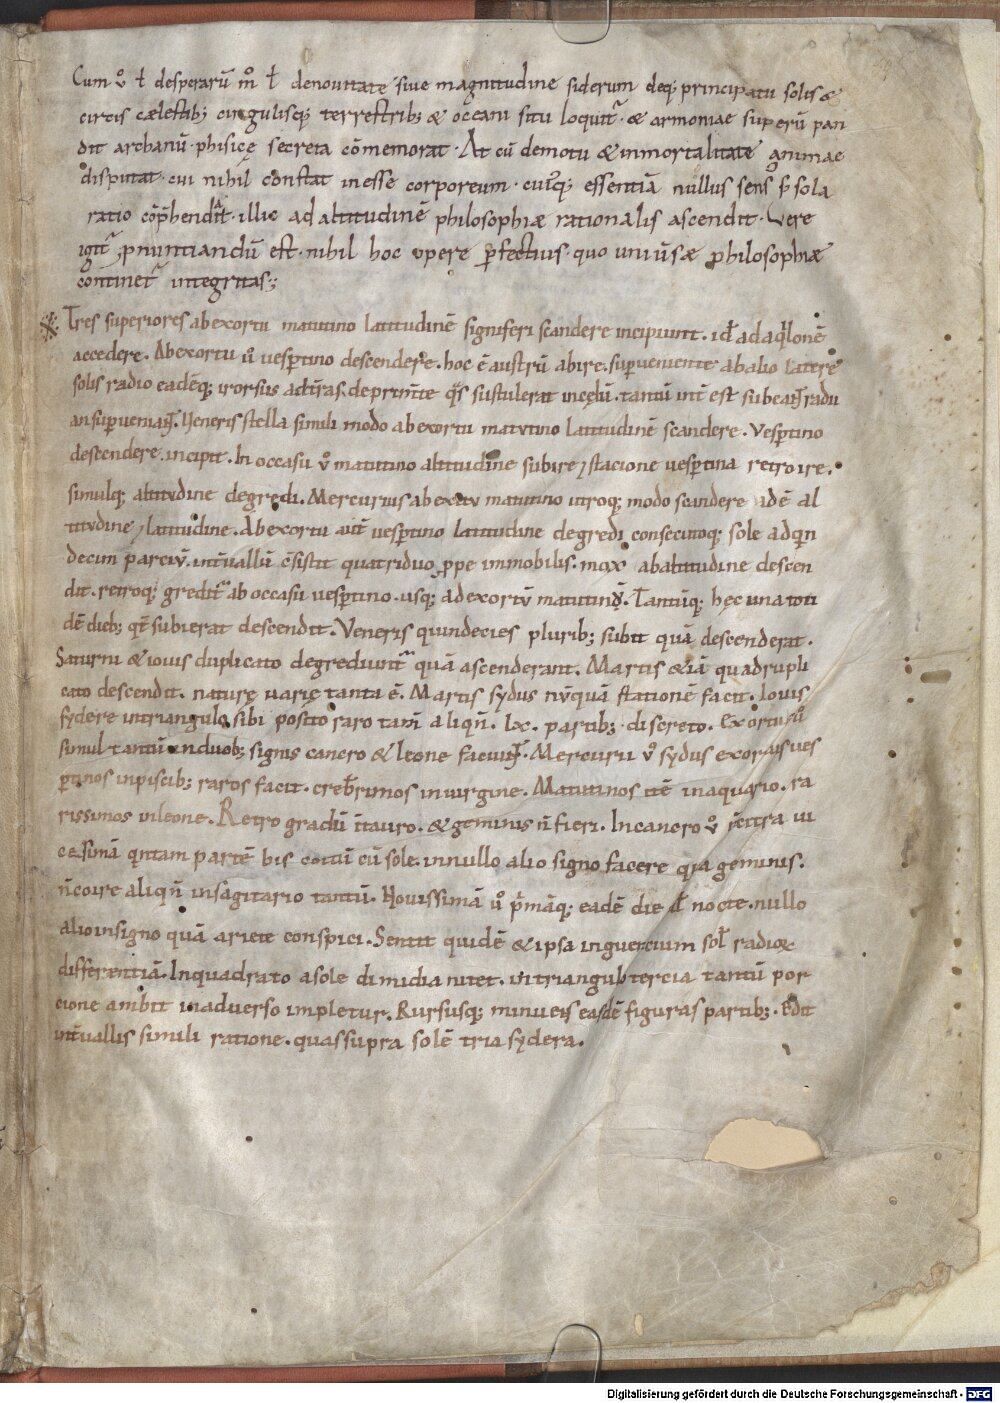 Cum v̊ ł desperarū m̊ ł denouitate siue magnitudine siderum deq; principatu solis &
circis cælestib; cingulisq; terrestrib; & occeani situ loquit᷑ · & armoniae superū pan
dit archanū · phisicę secreta cōmemorat · At cū demotu & inmortalitate animae
disputat · cui nihil constat inesse corporeum · cui᷒q; essentiā nullus sens᷒ s; sola
ratio cōp̄hendit · illic ad altitudinē philosophiæ rationalis ascendit · Vere
igit᷑ ꝓnuntiandū est · nihil hoc opere ꝑfectius · quo uniūsæ philosophiæ
continet᷑ integritas;
Tres superiores abexortu matutino latitudinē signiferi scandere incipiunt. id adaqlonē
accedere. Abexortu ů vesꝑtino descendere. hoc ē austrū abire. suꝑueniente abalio latere
solis radio eadēq; rorsus adtras deprimte qs sustulerat incelū. tantū int̄ est subeat radii
an suꝑueniat. Veneris stella simili modo abexortu matutino latitudinē scandere. Vesꝑtino
descendere. incipit. In occasu v̊ matutino altitudine subire ⁊ stacione vesꝑtina retroire.
simulq; altitudine degredi. Mercurius abexortu matutino utroq; modo scandere adē al
titudine ⁊ latitudine. Abexortu autē vesꝑtino latitudine degredi consecutoq; sole adqin
decim parciū. int̄uallū cōsistit quatriduo ꝓpe immobilis. mox abaltitudine descen
dit. retroq; gredit᷑ ab occasu vesꝑtino. usq; adexortū matutinū. Tantūq; hęc una toti
dē dieb; qt̄ subierat descendit. Veneris quindecies plurib; subit quā descenderat.
Saturni & iouis duplicato degrediunt᷑ quā ascenderant. Martis & iā quadrupli
cato descendit. naturę varię tanta ē. Martis sydus nūquā stationē facit. Iouis
sydere intriangulo sibi posito raro tam̄ aliqn̄. lx. partib; discreto. exortū ů
simul tantū induob; signis cancro & leone faciunt. Mercurii v̊ sydus exortus ves
ꝑtinos inpiscib; raros facit. creb̄rimos inuirgine. Matutinos itē inaquario. ra
rissimos inleone. Retro gradū ītauro. & geminis n̄ fieri. Incancro v̊ citra ui
cesimā quintam partē bis coitū cū sole. innullo alio signo facere qia geminis.
n̄coire aliqn̄ insagitario tantū. Nouissimā ů p̄māq; eadē die ł nocte. nullo
alio insigno quā ariete conspici. Sentit quidē & ipsa inguercium sol radioꝝ
differentiā. Inquadrato asole dimidia nitet. intriangulo tercia tantū por
cione ambit inaduerso impletur. Rursusq; minueis easdē figuras partib; · Edit
int̄uallis simili ratione. quassupra solē tria sydera.
Digitalisierung gefördert durch die Deutsche Forschungsgemeinschaft - DFG